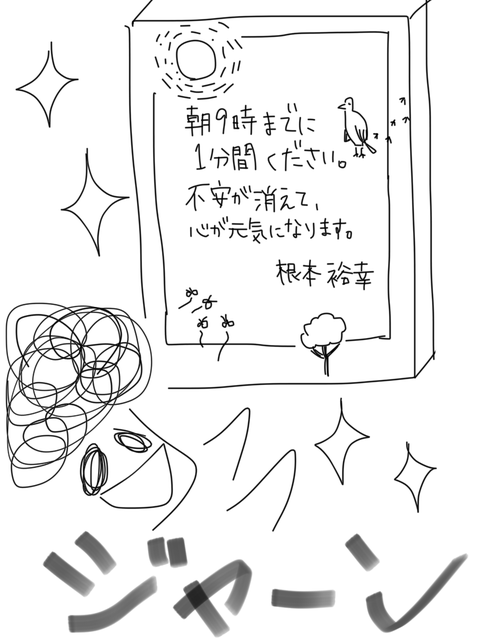 朝9時までに
1分間ください。
不安が消えて、
心が元気になります。
根本裕幸
ジャーン